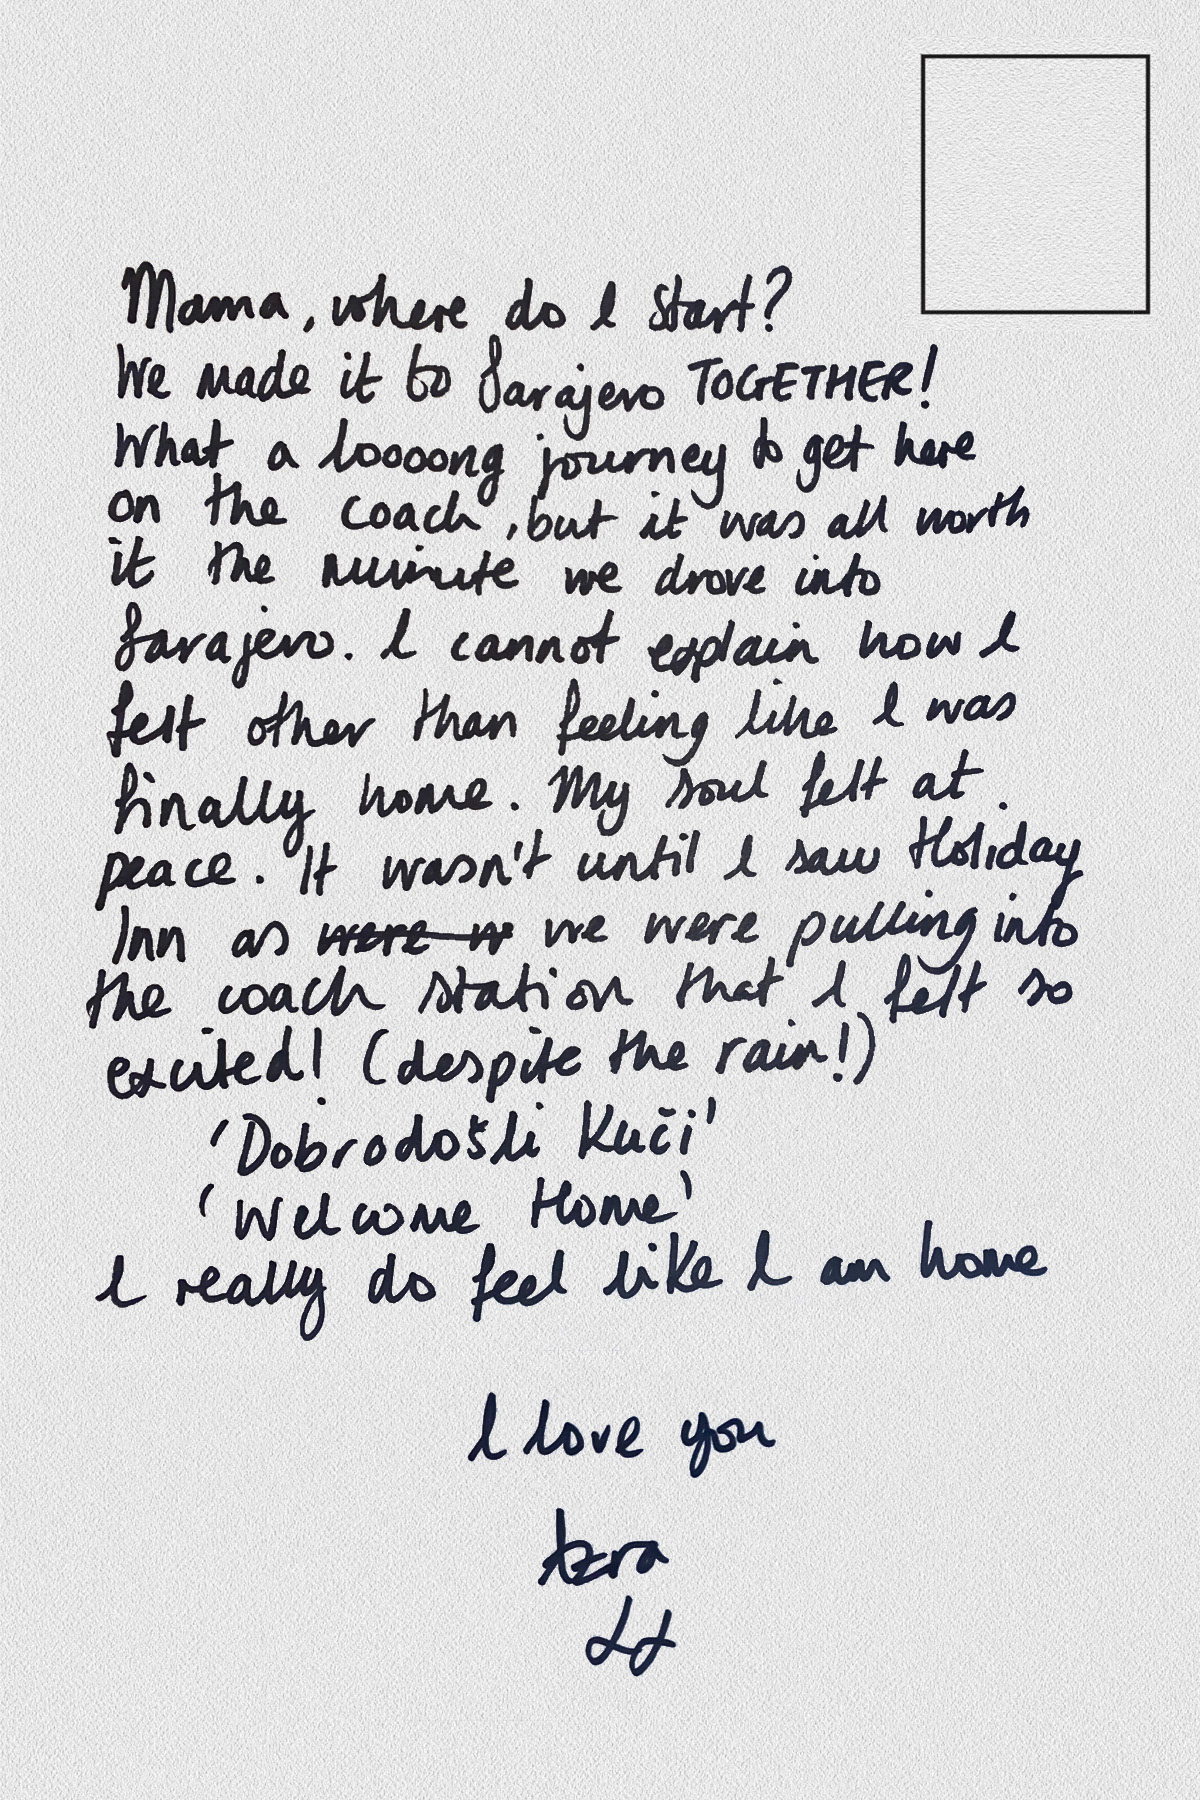 Mama, where do I start?
We made it to Sarajevo TOGETHER!
What a looooong journey to get here
on the coach, but it was all worth
it the minute we drove into
Sarajevo. I cannot explain how I
felt other than feeling like I was
finally home. My soul felt at
peace. It wasn't until I saw Holiday
Inn as were w we were pulling into
the coach station that I felt so
excited! (despite the rain!)
'Dobrodošli Kući'
'Welcome Home'
I really do feel like I am home
I love you
Izra
xx